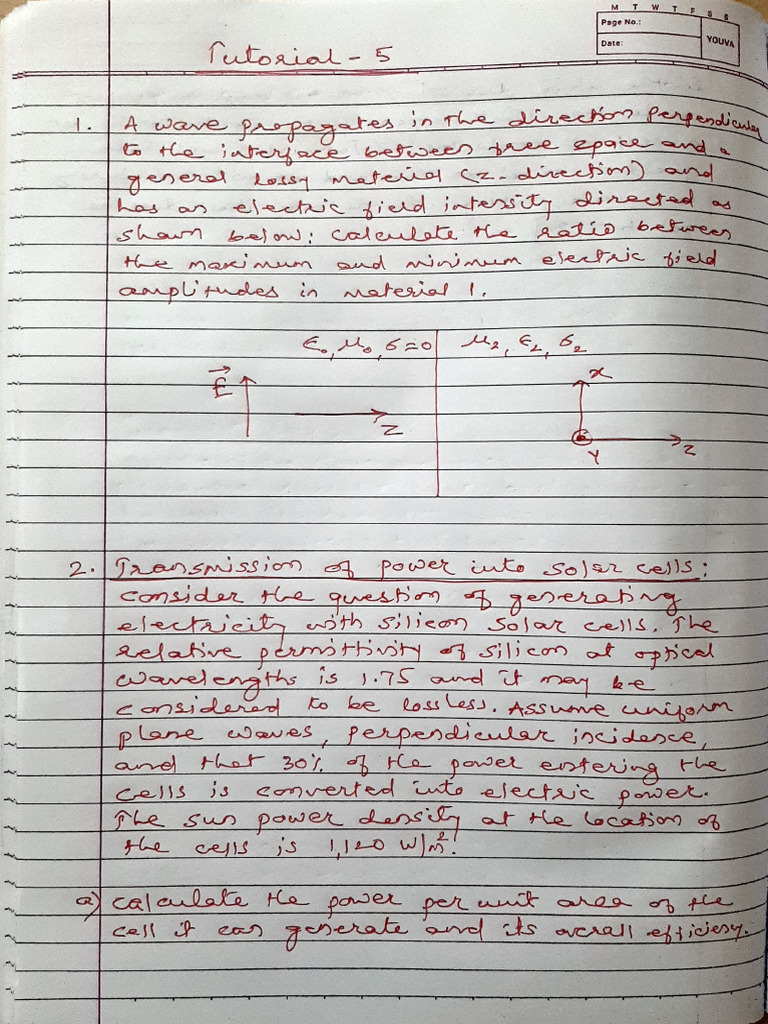 M T W T F S S
Page No.:
Date:
YOUVA
Tutorial - 5
1. A wave propagates in the direction perpendicular
to the interface between free space and a
general lossy material (z-direction) and
has an electric field intensity directed as
shown below: Calculate the ratio between
the maximum and minimum electric field
amplitudes in material 1.
ε₀, μ₀, σ=0 μ₂, ε₂, σ₂
E
Z
X
Y
Z
2. Transmission of power into solar cells:
Consider the question of generating
electricity with silicon solar cells. The
relative permittivity of silicon at optical
wavelengths is 1.75 and it may be
considered to be lossless. Assume uniform
plane waves, perpendicular incidence,
and that 30% of the power entering the
cells is converted into electric power.
The sun power density at the location of
the cells is 1,120 W/m².
a) Calculate the power per unit area of the
cell it can generate and its overall efficiency.